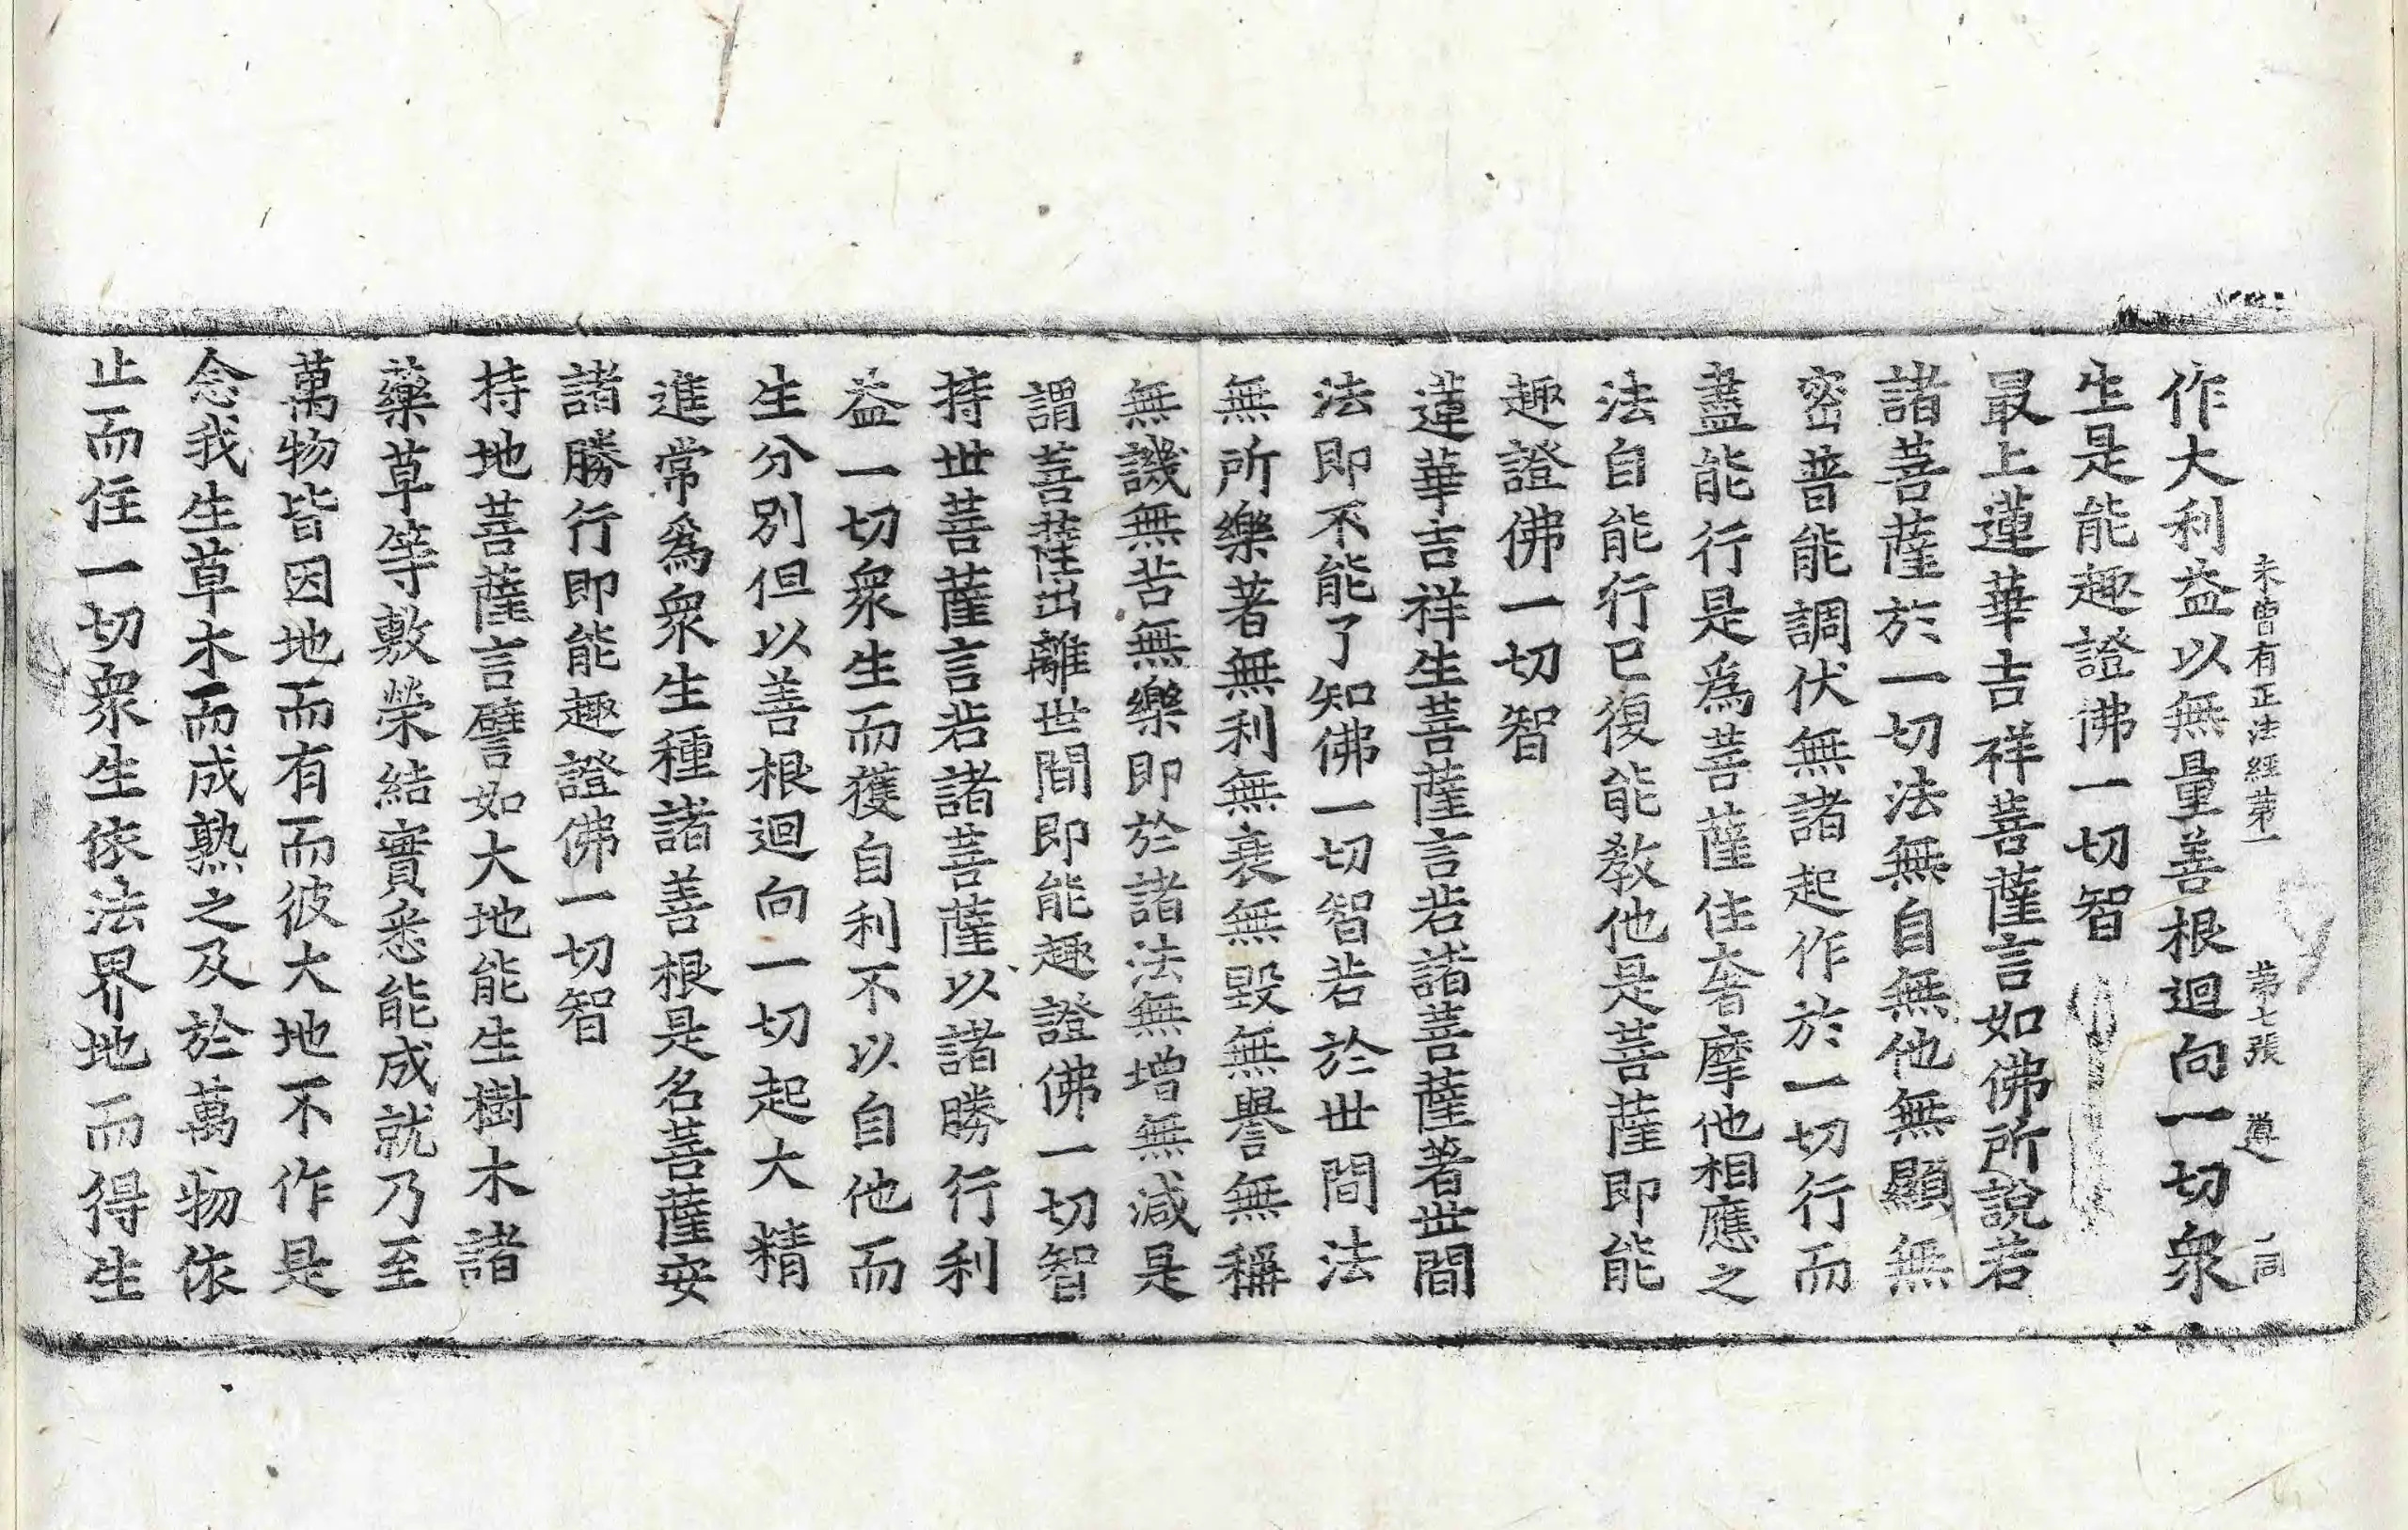 未曾有正法經第一 第七張 遵 一同
作大利益以無量善根迴向一切衆
生是能趣證佛一切智
最上蓮華吉祥菩薩言如佛所說若
諸菩薩於一切法無自無他無顯無
密普能調伏無諸起作於一切行而
盡能行是爲菩薩住奢摩他相應之
法自能行已復能教他是菩薩即能
趣證佛一切智
蓮華吉祥生菩薩言若諸菩薩著世間
法即不能了知佛一切智若於世間法
無所樂著無利無衰無毀無譽無稱
無譏無苦無樂即於諸法無增無減是
謂菩薩出離世間即能趣證佛一切智
持世菩薩言若諸菩薩以諸勝行利
益一切衆生而獲自利不以自他而
生分別但以善根迴向一切起大精
進常爲衆生種諸善根是名菩薩安
諸勝行即能趣證佛一切智
持地菩薩言譬如大地能生樹木諸
藥草等敷榮結實悉能成就乃至
萬物皆因地而有而彼大地不作是
念我生草木而成熟之及於萬物依
止而住一切衆生依法界地而得生